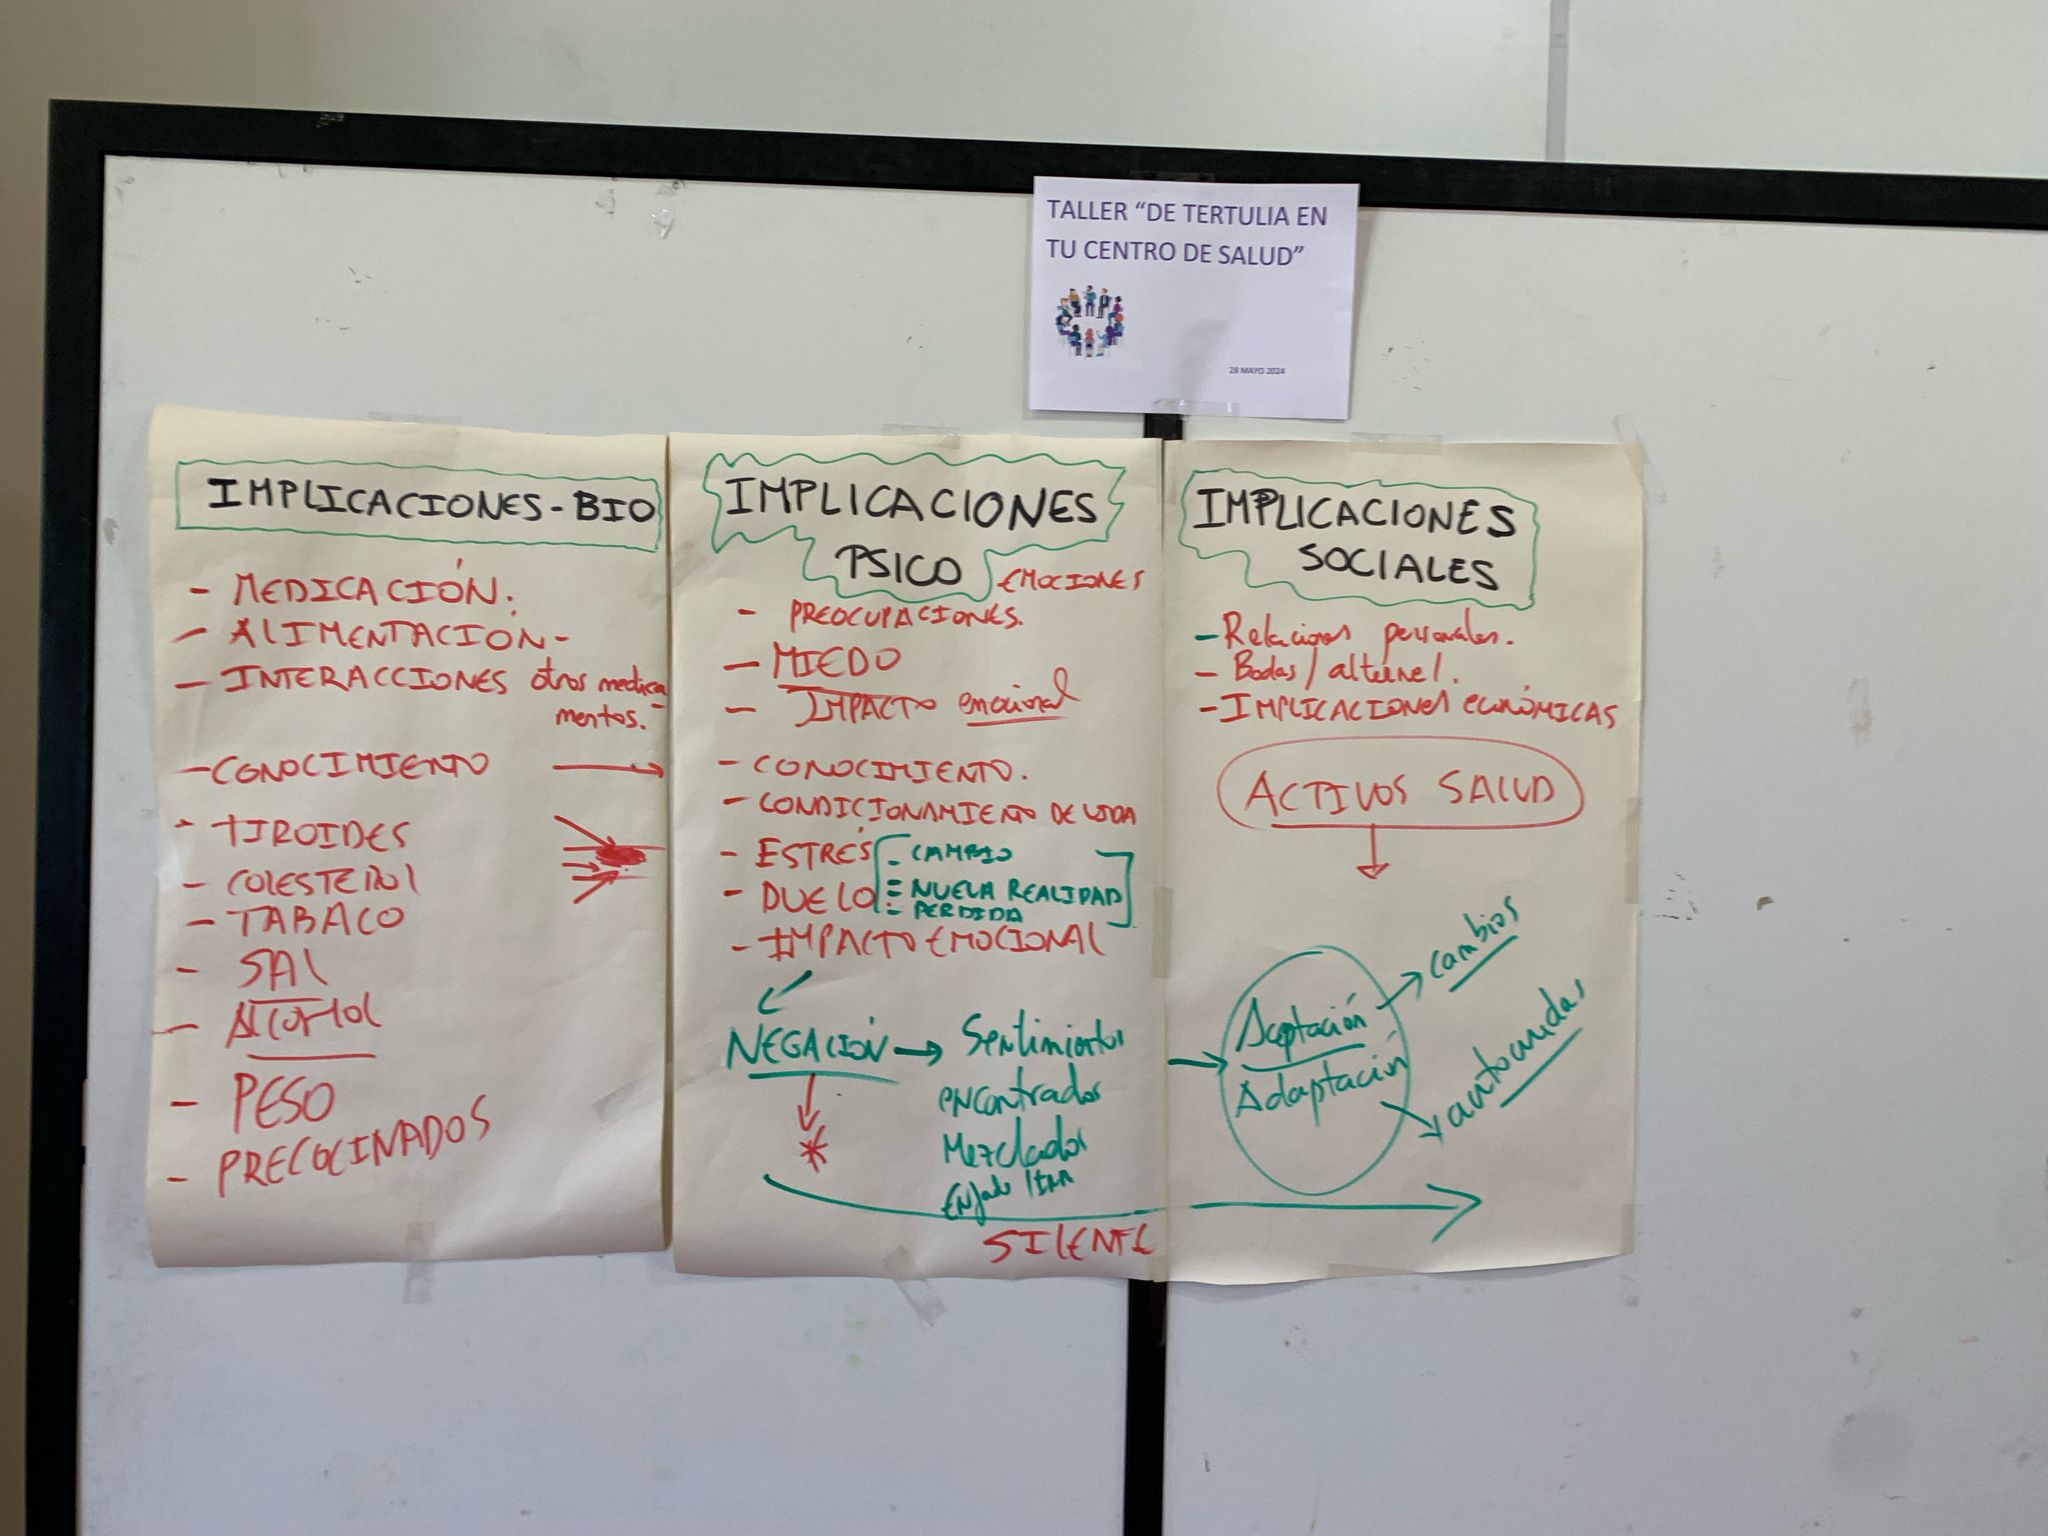 TALLER “DE TERTULIA EN
TU CENTRO DE SALUD”
28 MAYO 2024
IMPLICACIONES-BIO
- MEDICACIÓN.
- ALIMENTACIÓN-
- INTERACCIONES otros medica
mentos.
- CONOCIMIENTO
- TIROIDES
- COLESTEROL
- TABACO
- SAL
- ALCOHOL
- PESO
- PRECOCINADOS
IMPLICACIONES
PSICO
EMOCIONES
- PREOCUPACIONES.
- MIEDO
- IMPACTO emocional
- CONOCIMIENTO.
- CONDICIONAMIENTO DE VIDA
- ESTRÉS - CAMBIO
- DUELO = NUEVA REALIDAD
= PERDIDA
- IMPACTO EMOCIONAL
NEGACIÓN → Sentimientos
encontrados
Mezclados
Enfado / IRA
SILENTE
IMPLICACIONES
SOCIALES
- Relaciones personales.
- Bodas /
- IMPLICACIONES ECONÓMICAS
ACTIVOS SALUD
Aceptación
Adaptación
cambios
autocuidas